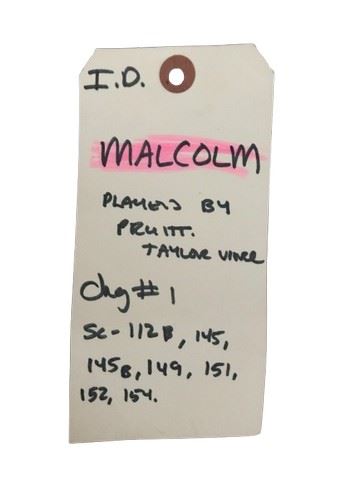 I.D.
MALCOLM
PLAYED BY
PRUITT.
TAYLOR VINCE
Chg # 1
Sc - 112B, 145,
145B, 149, 151,
152, 154.